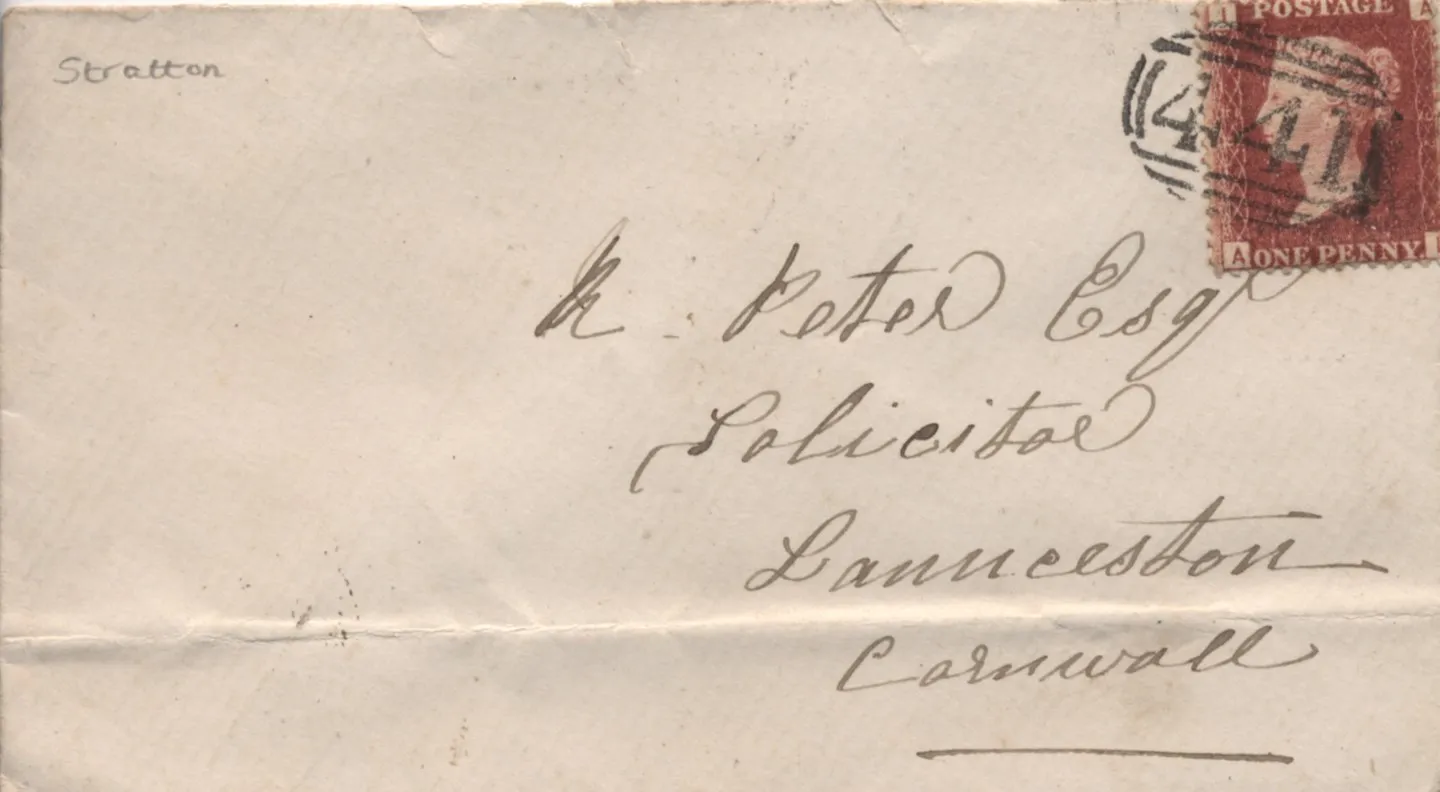 Stratton
POSTAGE A
441
A ONE PENNY
R. Peter Esqr
Solicitor
Launceston
Cornwall